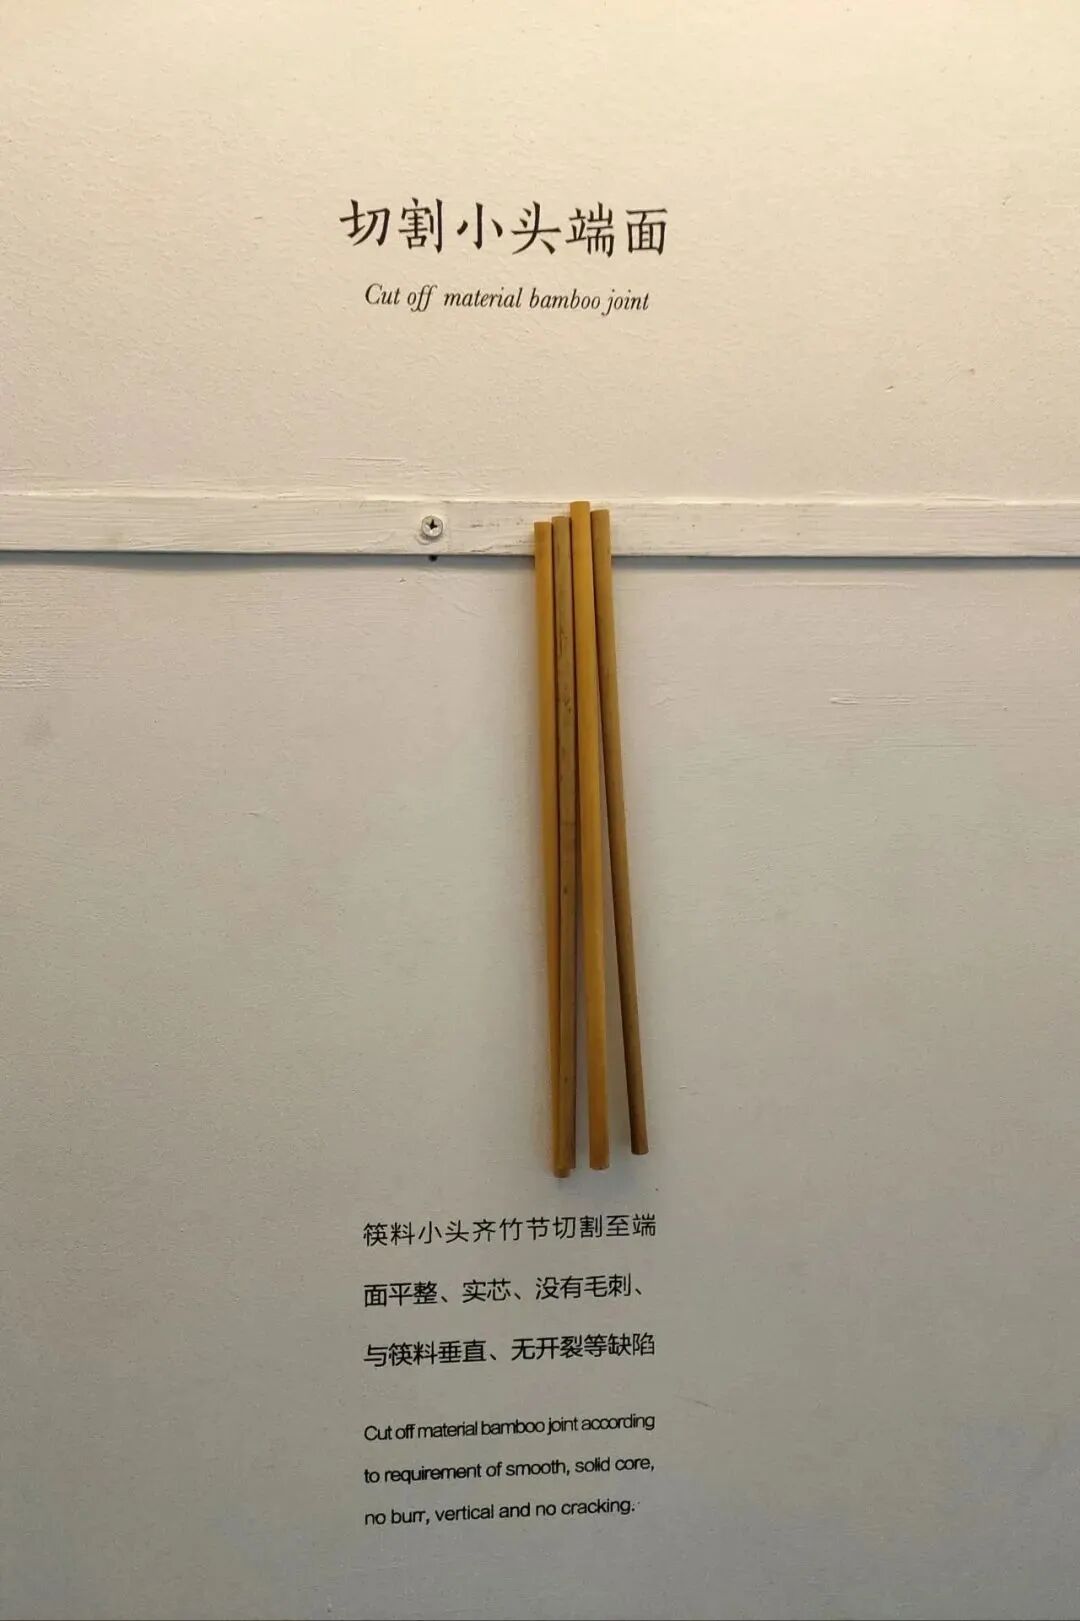 切割小头端面
Cut off material bamboo joint
筷料小头齐竹节切割至端
面平整、实芯、没有毛刺、
与筷料垂直、无开裂等缺陷
Cut off material bamboo joint according
to requirement of smooth, solid core,
no burr, vertical and no cracking.